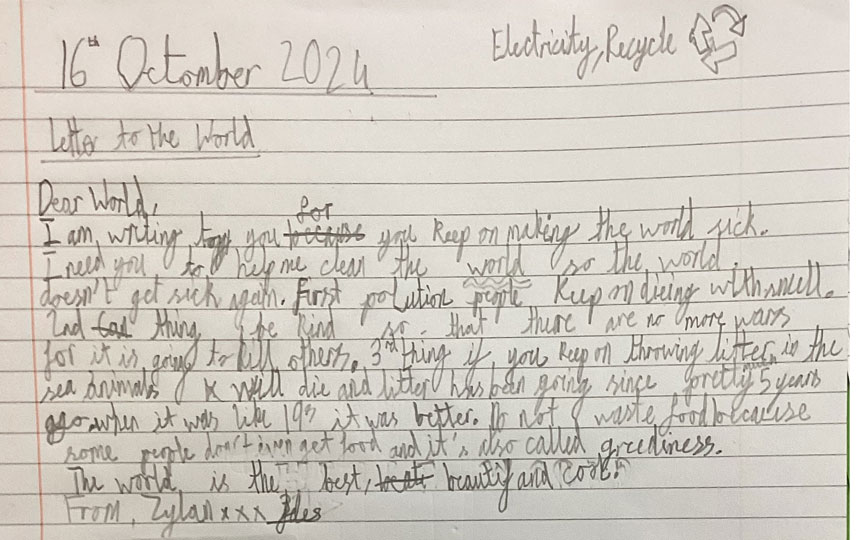 16th Octomber 2024
Electricity, Recycle
Letter to the World
Dear World,
for
I am writing to you because you keep on making the world sick.
I need you to help me clean the world so the world
doesn't get sick again. First polution people keep on dieing with smell.
2nd thing be kind so that there are no more wars
for it is going to kill others. 3rd thing if you keep on throwing litter in the
sea animals will die and litter has been going since pretty 5 years
ago when it was like 19s it was better. Do not waste food because
some people don't even get food and it's also called greediness.
The world is the best, beautify and cool.
From, Zylan xxx